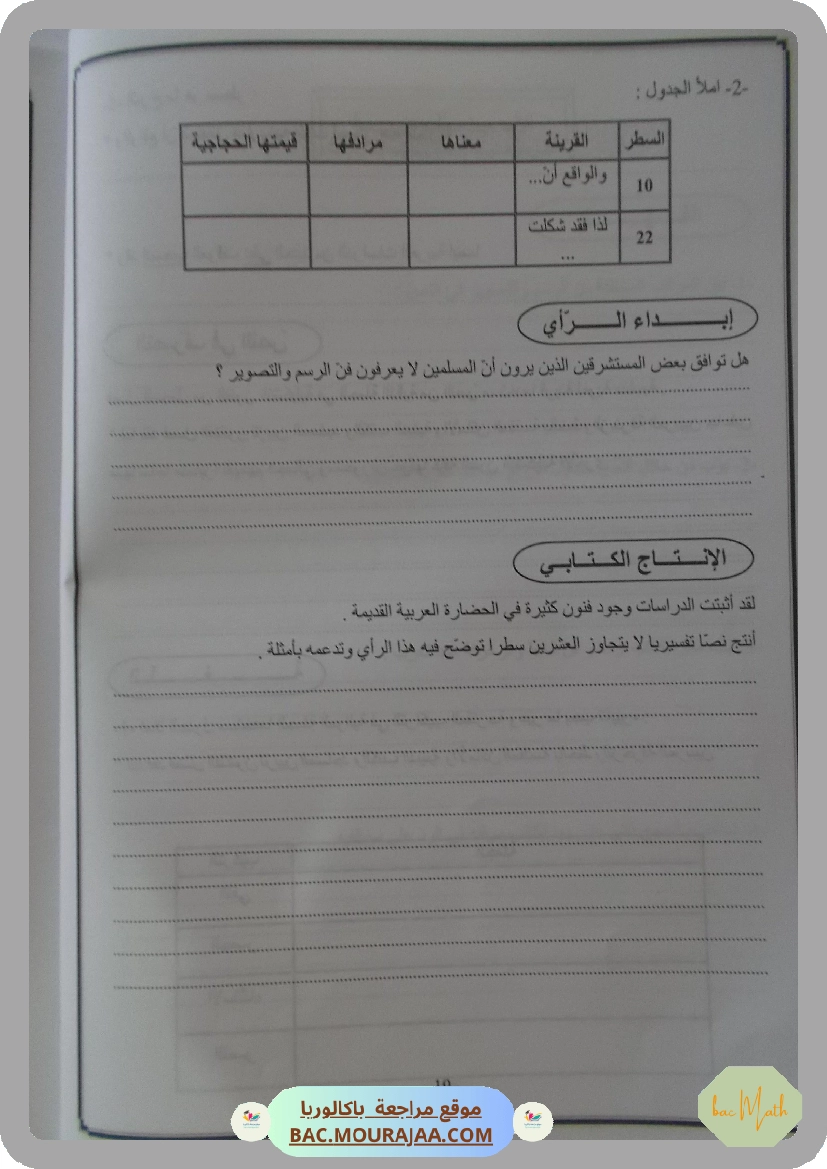 -2- املأ الجدول :
السطر القرينة معناها مرادفها قيمتها الحجاجية
10 والواقع أنّ...
22 لذا فقد شكلت ...
إبـــداء الـــرّأي
هل توافق بعض المستشرقين الذين يرون أنّ المسلمين لا يعرفون فنّ الرسم والتصوير ؟
الإنـتــاج الكـتـابـي
لقد أثبتت الدراسات وجود فنون كثيرة في الحضارة العربية القديمة .
أنتج نصّا تفسيريا لا يتجاوز العشرين سطرا توضّح فيه هذا الرأي وتدعمه بأمثلة .
موقع مراجعة باكالوريا
BAC.MOURAJAA.COM
bac Math